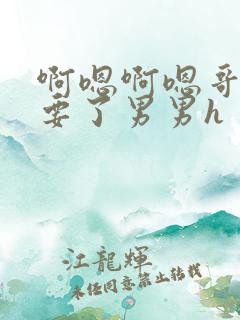 啊嗯啊嗯哥
要了男男h
江龍輝
未经同意禁止转载